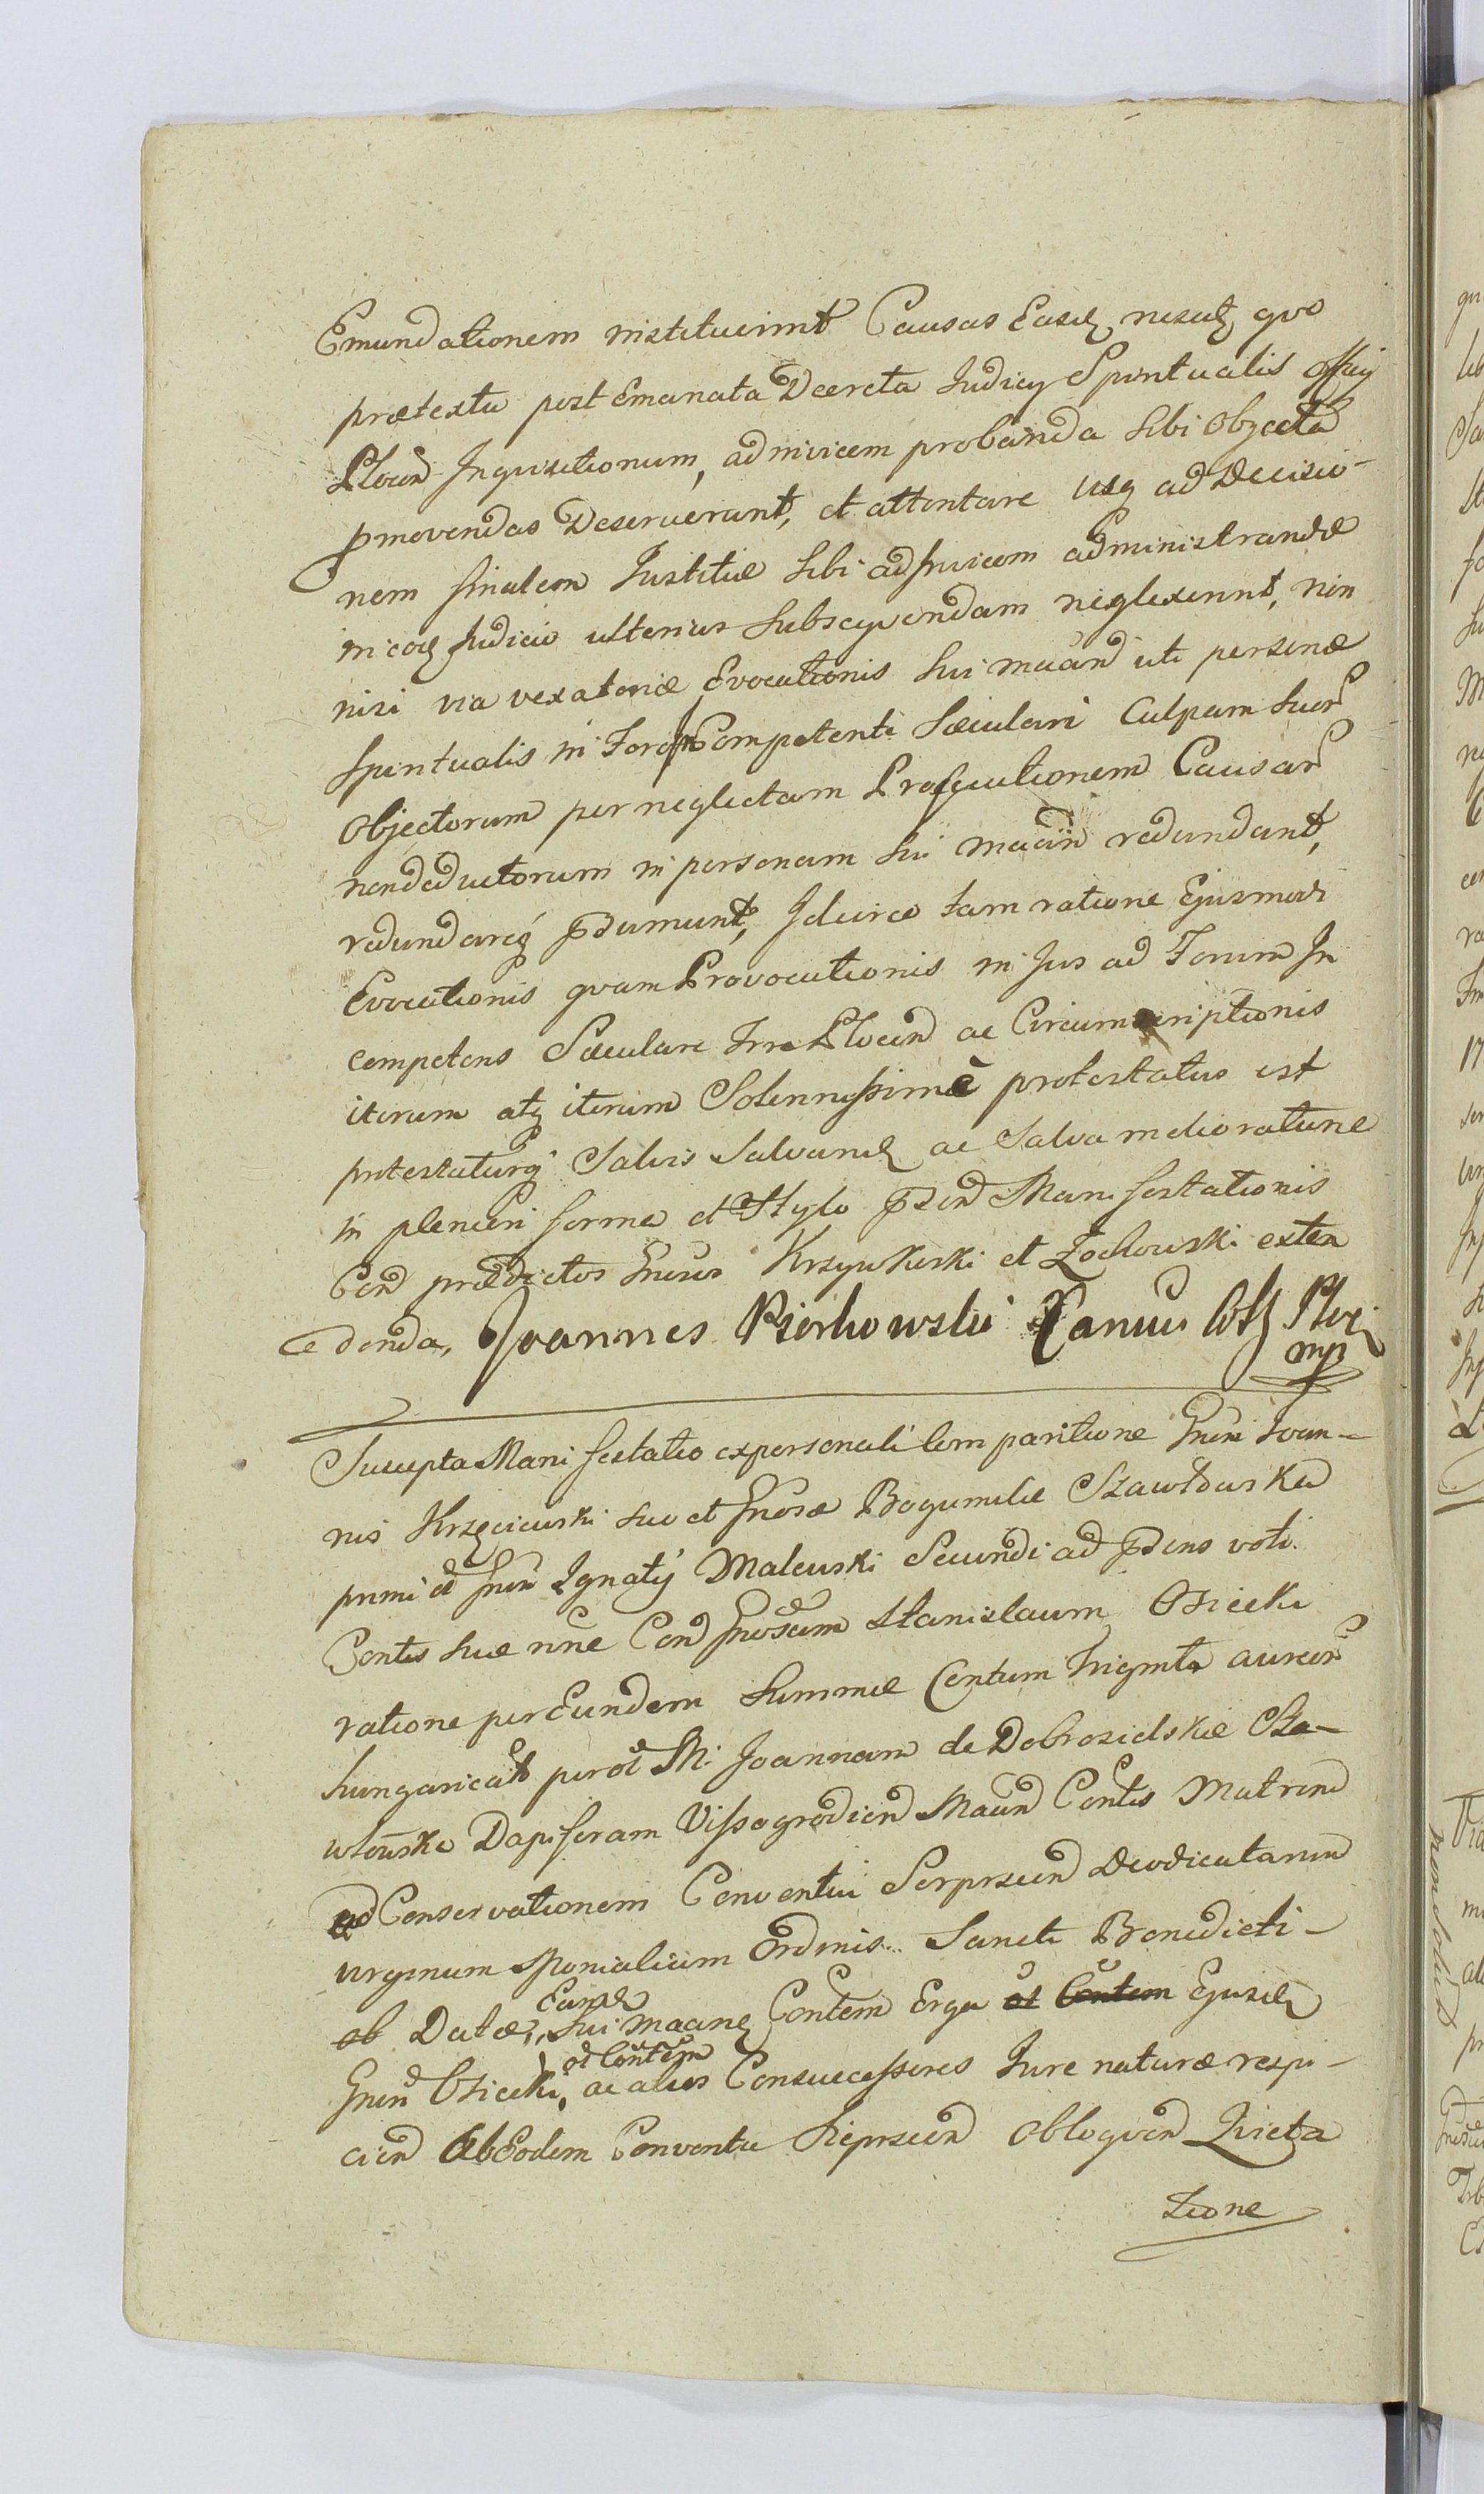 Emundationem instituerint Causas Easd nescitq quo
prætextu post Emanata Decreta Judicy Spiritualis Officij
Plocen Inquisitionum, adinvicem probanda sibi Objecta
pmovendas Deseruerunt, et attentare usq ad Decisio-
nem finalem Justitiæ sibi adinvicem administrandæ
in eod Judicio ulterius Subsequendam neglexerunt, non
nisi via vexatoriæ Evocationis sui uti personæ
Spiritualis in Foro inCompetenti Sæculari Culpam suor
Objectorum per neglectam Prosecutionem Causar
nondeductorum in personam sui redundant,
redundareq psumunt, Idcirco tam ratione Ejusmodi
Evocationis quam Provocationis in Jus ad Forum In
competens Sæculare Trre Plocen ac Circumscriptionis
iterum atq iterum Solennissimè protestatus est
protestaturq Salvis Salvand ac Salva melioratione
in pleniori forma et Stylo psen Manifestationis
Con prædictos Gnosos Krzywkoski et Żochowski exten
denda, Joannes Pściorkowski Canus Plocē
mp
Suscepta Manifestatio ex personali Comparitione Gnsi Joan-
nis Krzęciewski suo et Gnosæ Bogumilæ Szawłoska
primi et Gnsi Ignatij Malewski Secundi ad psens voti
Contis suæ nne Con Gnosum Stanislaum Osiecki
ratione per Eundem Summæ Centum triginta aureor
hungaricalt Joannam de Dobrosielskie Sza-
włoska Dapiferam Vissogrodien Contis Matrem
ad Conservationem Conventui Sierpscen Deodicatarum
Virginum Sponialium Ordinis Sancti Benedicti-
ob Datæ, Eamd sui Contem Erga et Contem Ejusd
Gnsi Osiecki, et Contem ac alios Consuccessores Jure naturæ respi-
cien Ab Eodem Conventu Sieprscen Obloquen Quieta
tione